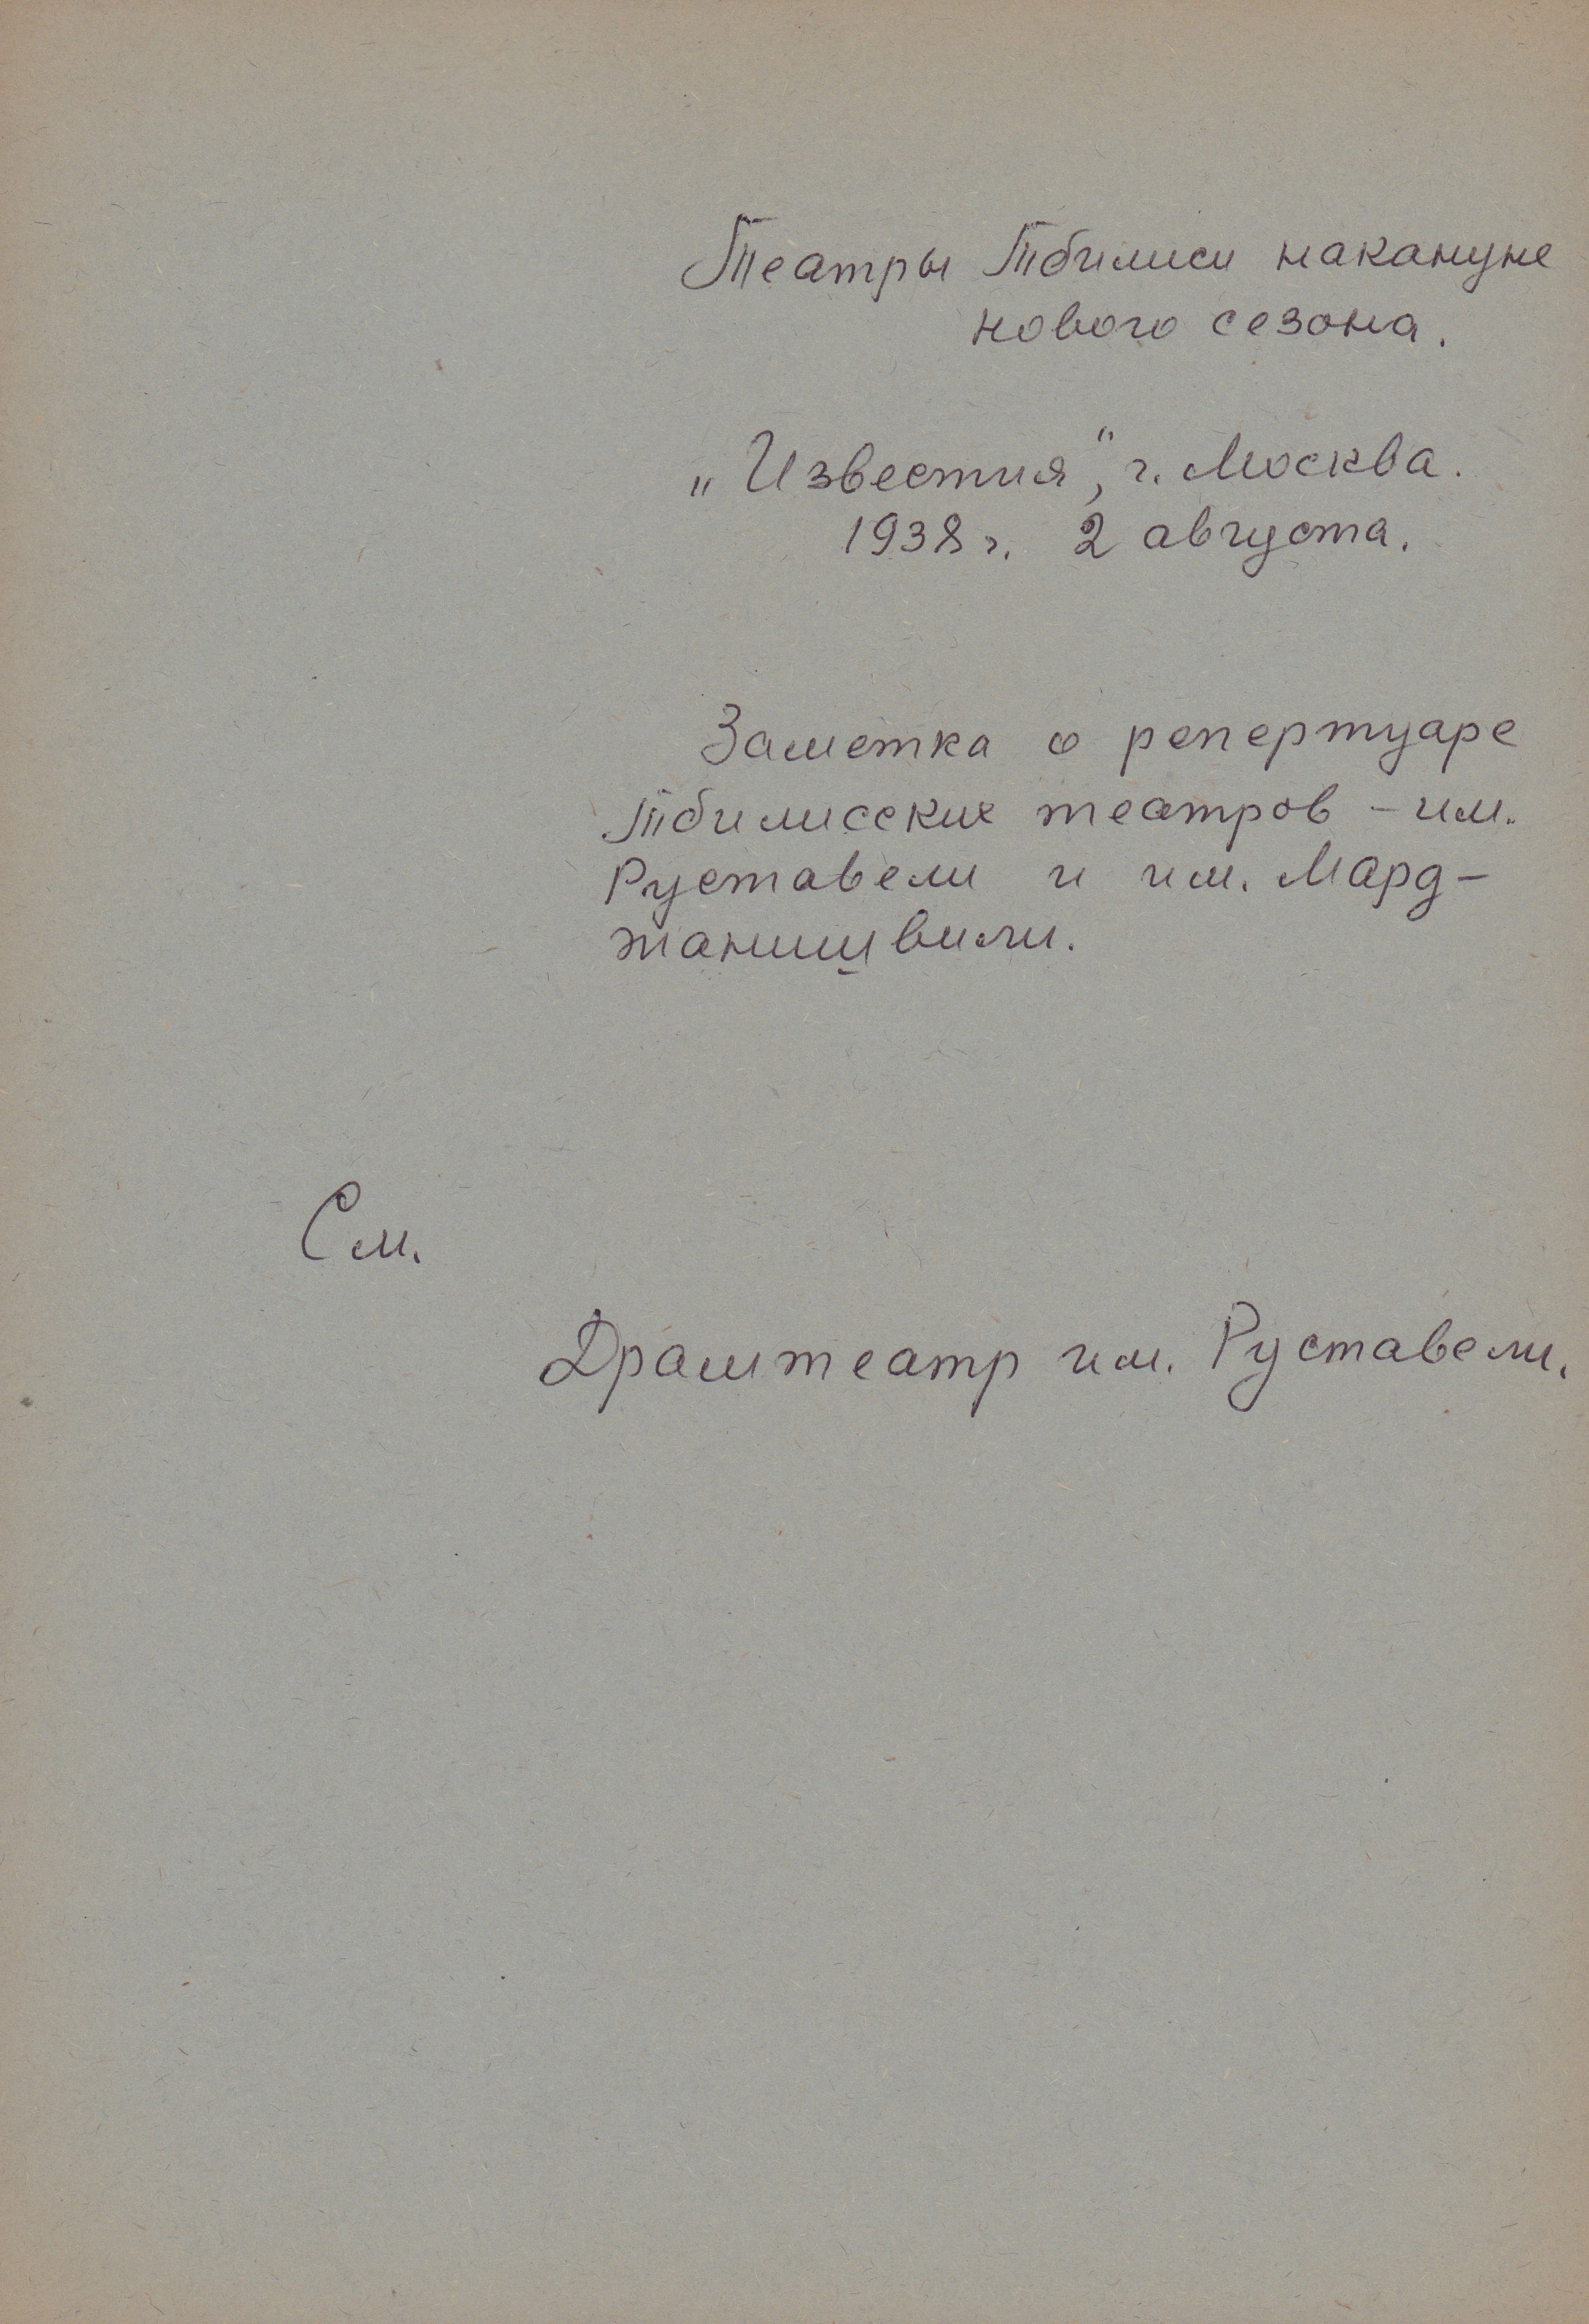 Театры Тбилиси накануне
нового сезона.
„Известия“, г. Москва.
1938 г. 2 августа.
Заметка о репертуаре
Тбилисских театров – им.
Руставели и им. Мард-
жанишвили.
См.
Драмтеатр им. Руставели.